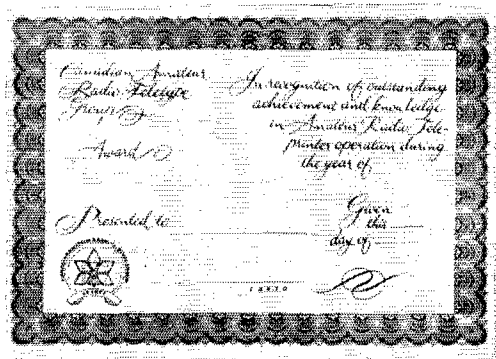 Canadian Amateur
Radio Teletype
Group
Award
In recognition of outstanding
achievement and knowledge
in Amateur Radio Tele-
Printer operation during
the year of
Presented to
Given
this
day of